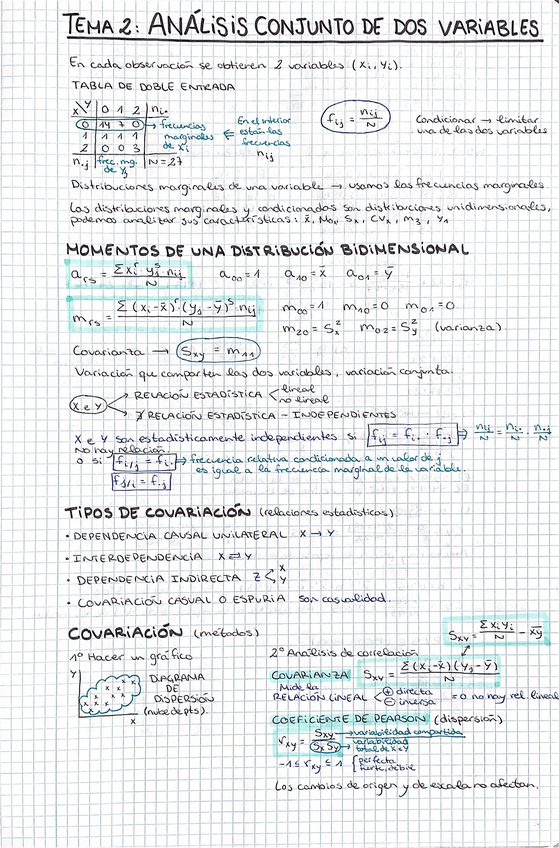 TEMA 2: ANÁLISIS CONJUNTO DE DOS VARIABLES
En cada observación se obtienen 2 variables (xᵢ, yᵢ).
TABLA DE DOBLE ENTRADA
x\y 0 1 2 nᵢ.
0 14 7 0 → frecuencias
1 1 1 1 marginales
2 0 0 3 de xᵢ
n.j frec. mg. de yⱼ N = 27
En el interior están las frecuencias nᵢⱼ
fᵢⱼ = nᵢⱼ / N
Condicionar → limitar
una de las dos variables
Distribuciones marginales de una variable → usamos las frecuencias marginales
Las distribuciones marginales y condicionadas son distribuciones unidimensionales,
podemos analizar sus características: x̄, Mo, Sx, CVx, m₃, γ₁
MOMENTOS DE UNA DISTRIBUCIÓN BIDIMENSIONAL
aᵣₛ = Σ xᵢʳ · yⱼˢ nᵢⱼ / N a₀₀ = 1 a₁₀ = x̄ a₀₁ = ȳ
mᵣₛ = Σ (xᵢ - x̄)ʳ · (yⱼ - ȳ)ˢ · nᵢⱼ / N m₀₀ = 1 m₁₀ = 0 m₀₁ = 0
m₂₀ = Sx² m₀₂ = Sy² (varianza)
Covarianza → Sxy = m₁₁
Variación que comparten las dos variables, variación conjunta.
X e Y
RELACIÓN ESTADÍSTICA < lineal
no lineal
∄ RELACIÓN ESTADÍSTICA - INDEPENDIENTES
X e Y son estadísticamente independientes si fᵢⱼ = fᵢ. · f.ⱼ ⇒ nᵢⱼ/N = nᵢ./N · n.ⱼ/N
no hay relación.
o si fᵢ/ⱼ = fᵢ. ⇒ frecuencia relativa condicionada a un valor de j
es igual a la frecuencia marginal de la variable.
fⱼ/ᵢ = f.ⱼ
TIPOS DE COVARIACIÓN (relaciones estadísticas)
· DEPENDENCIA CAUSAL UNILATERAL X → Y
· INTERDEPENDENCIA X ⇄ Y
· DEPENDENCIA INDIRECTA Z < X Y
· COVARIACIÓN CASUAL O ESPURIA son casualidad.
COVARIACIÓN (métodos)
Sxy = Σ xᵢ yᵢ / N - x̄ȳ
1º Hacer un gráfico
Y
X
DIAGRAMA
DE
DISPERSIÓN
(nube de pts).
2º Análisis de correlación
COVARIANZA Sxy = Σ (xᵢ - x̄)(yⱼ - ȳ) / N
Mide la
RELACIÓN LINEAL < + directa
- inversa
= 0 no hay rel lineal
COEFICIENTE DE PEARSON (dispersión)
rxy = Sxy / Sx Sy
→ variabilidad compartida
→ variabilidad
total de X e Y
-1 ≤ rxy ≤ 1 { perfecta
fuerte, débil
Los cambios de origen y de escala no afectan.